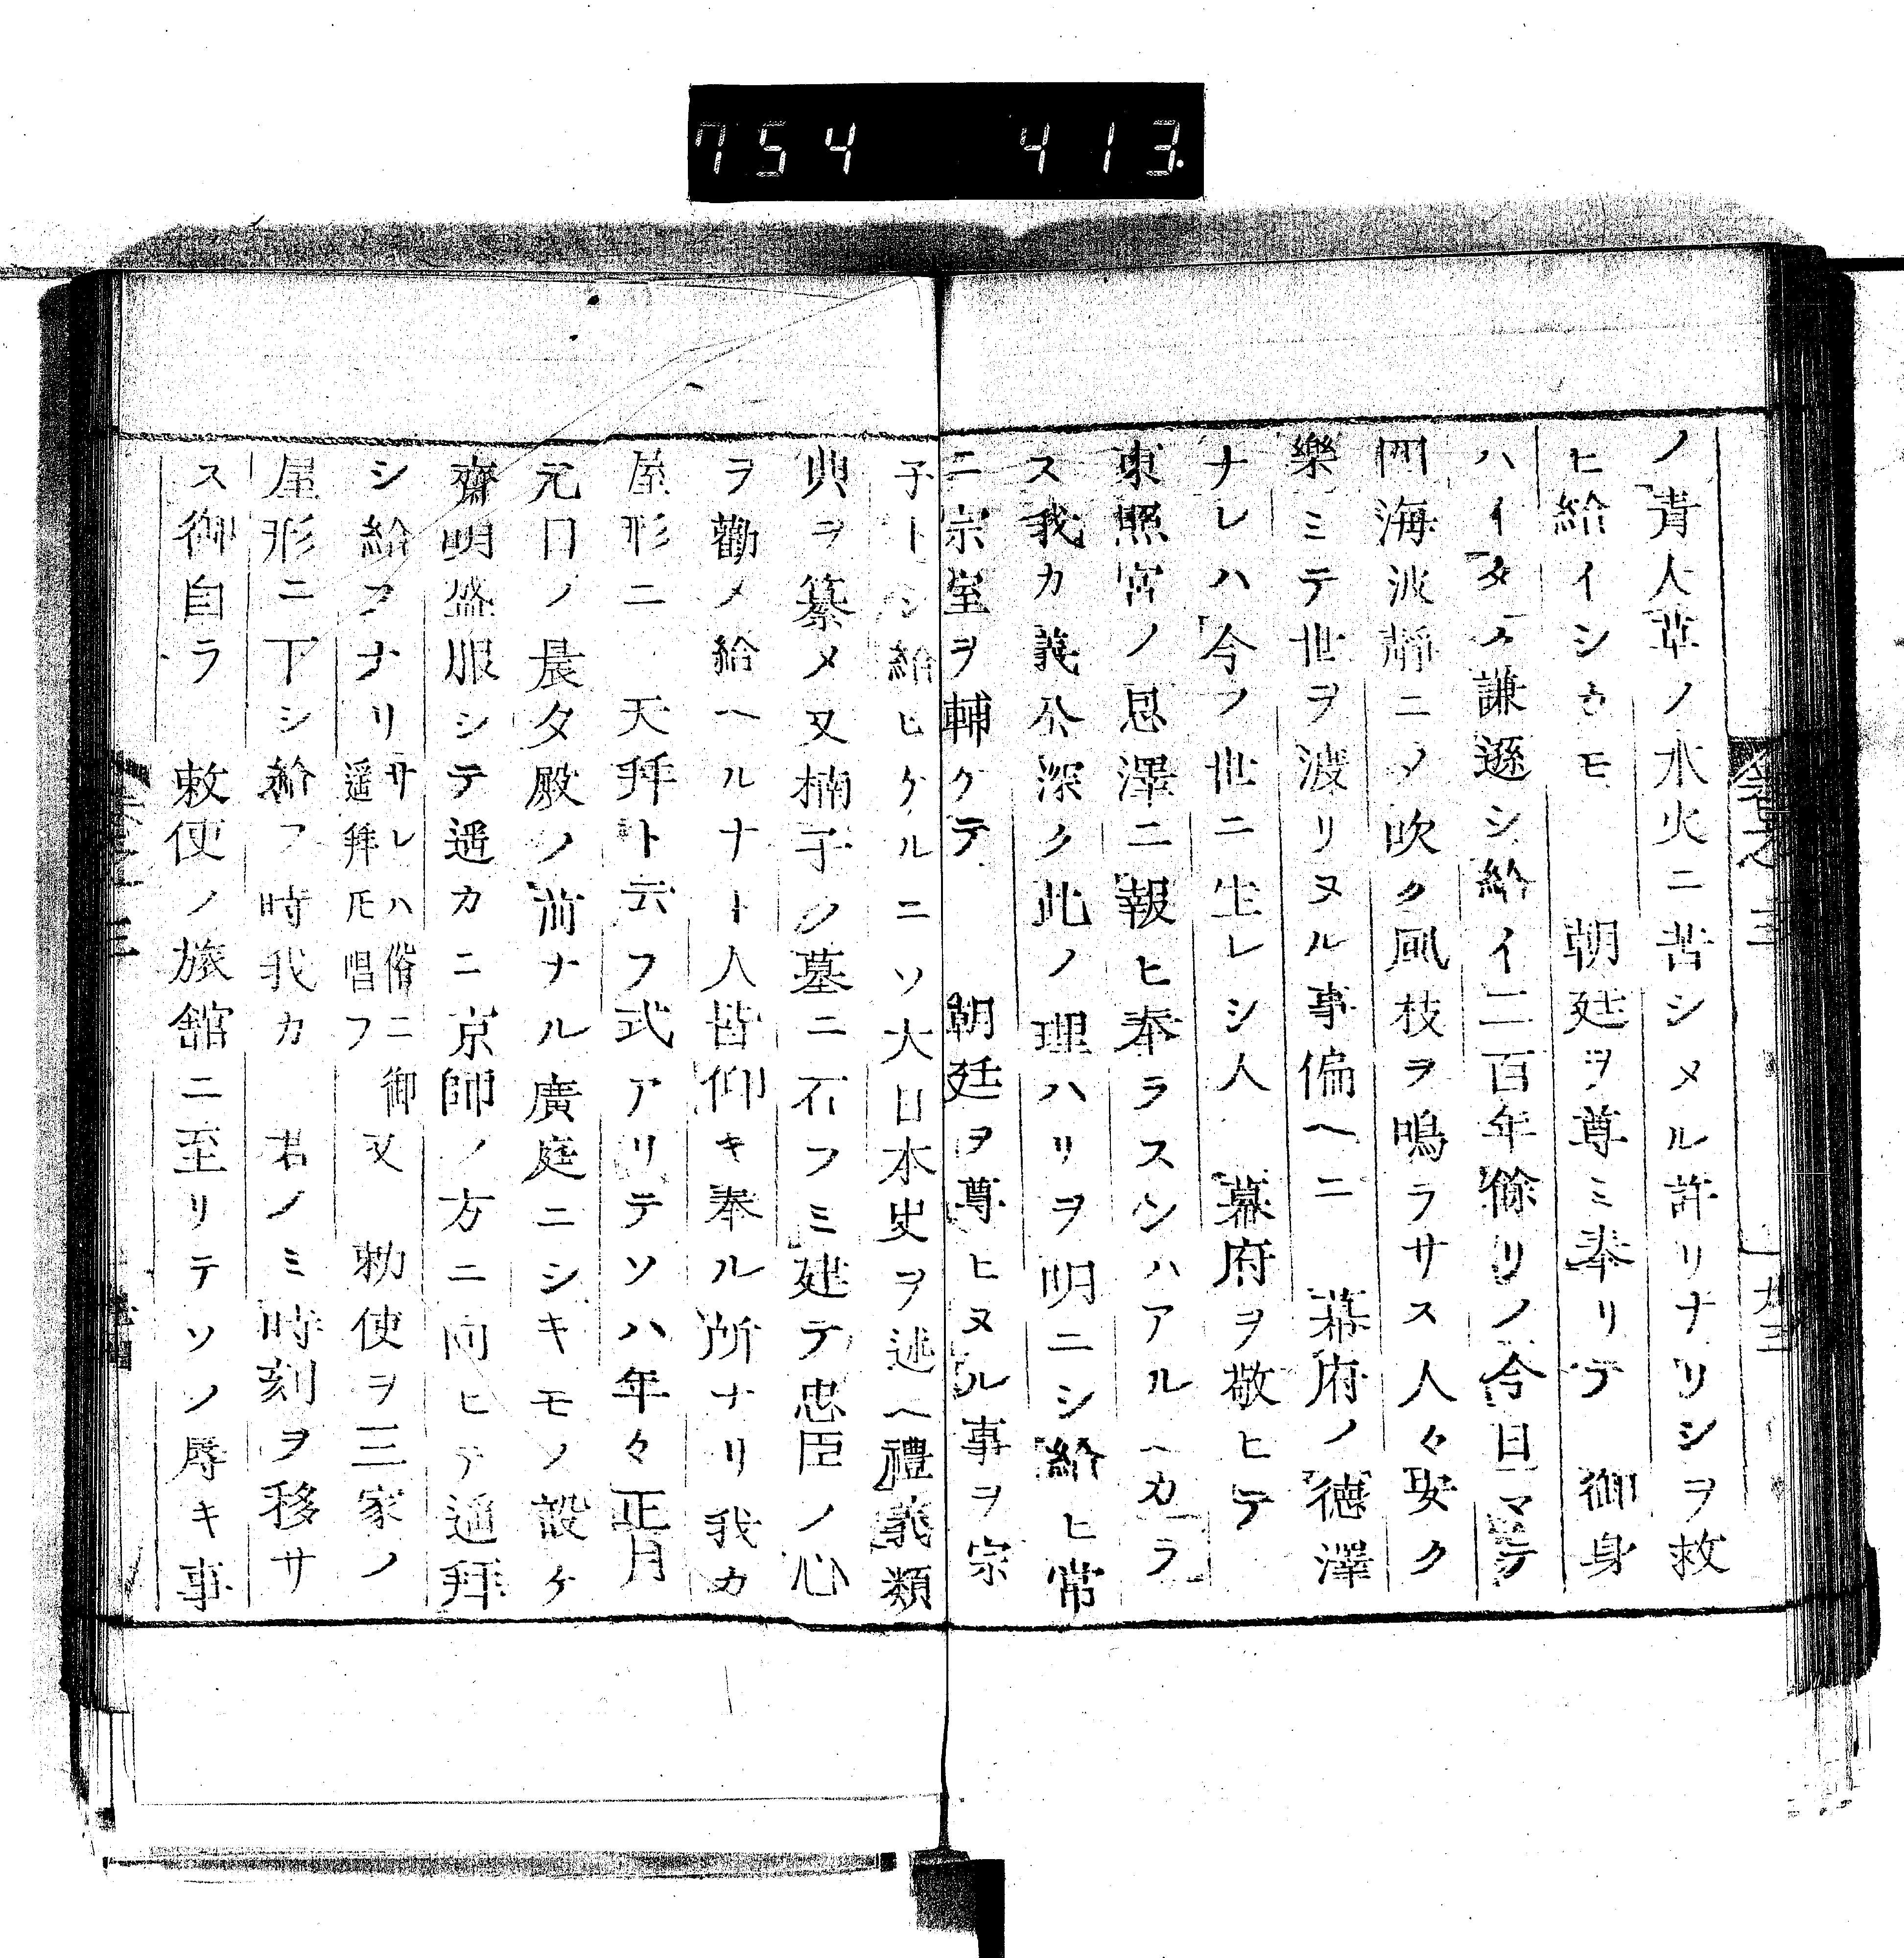 754 413
ノ青人草ノ水火ニ苦シメル許リナリシヲ救
ヒ給イシカモ 朝廷ヲ尊ミ奉リテ 御身
ハイタク謙遜シ給イ二百年餘リノ今日マテ
四海波靜ニノ吹ク風枝ヲ鳴ラサス人々安ク
樂ミテ世ヲ渡リヌル事偏ヘニ 幕府ノ德澤
ナレハ今ノ世ニ生レシ人 幕府ヲ敬ヒテ
東照宮ノ恩澤ニ報ヒ奉ラスンハアルヘカラ
ス我カ義公深ク此ノ理ハリヲ明ニシ給ヒ常
ニ宗室ヲ輔ケテ 朝廷ヲ尊ヒヌル事ヲ宗
子トシ給ヒケルニソ大日本史ヲ述ヘ禮義類
典ヲ纂メ又楠子ノ墓ニ石フミ建テ忠臣ノ心
ヲ勸メ給ヘルナト人皆仰キ奉ル所ナリ我カ
屋形ニ 天拜ト云フ式アリテソハ年々正月
元日ノ晨夕殿ノ前ナル廣庭ニシキモノ設ケ
齋明盛服シテ遥カニ京師ノ方ニ向ヒテ遥拜
シ給フナリサレハ俗ニ御遥拜𪜈唱フ又 勅使ヲ三家ノ
屋形ニ下シ給フ時我カ 君ノミ時刻ヲ移サ
ス御自ラ 敕使ノ旅舘ニ至リテソノ辱キ事